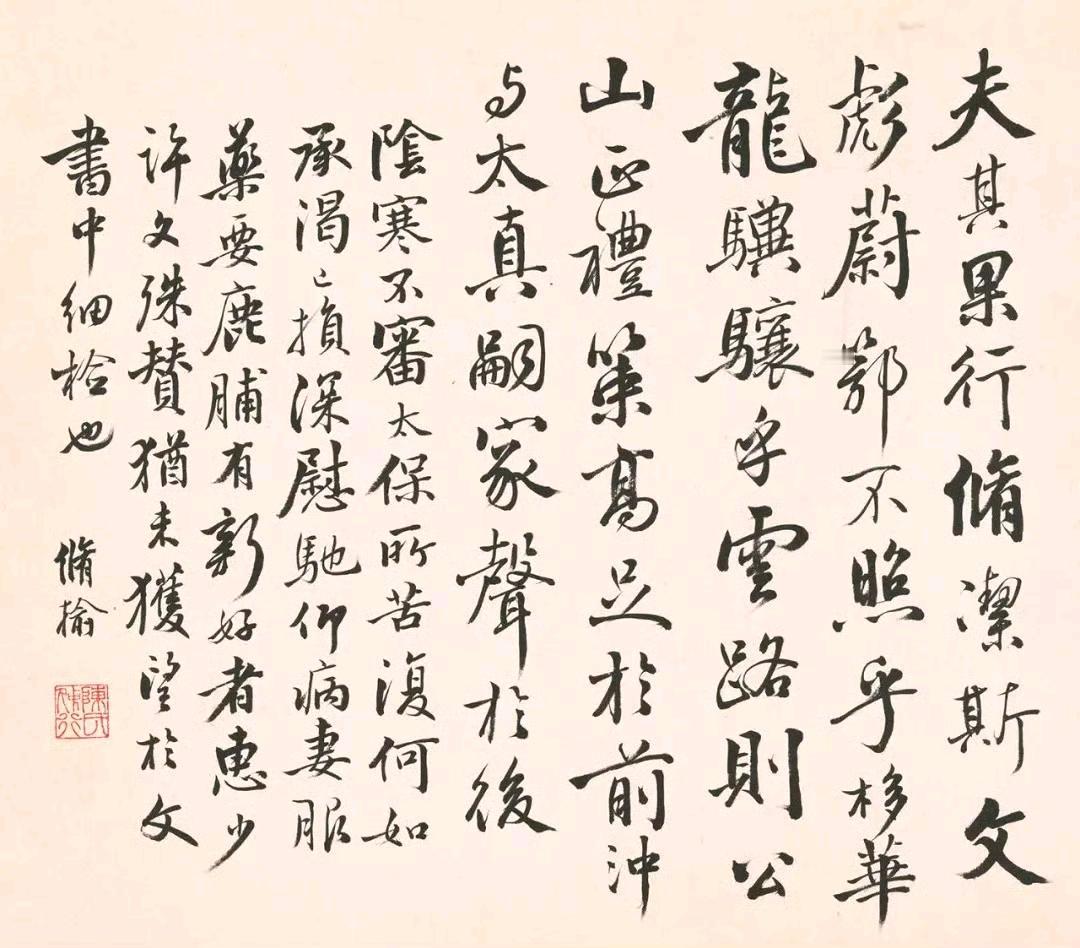 夫其果行脩潔斯文
彪蔚鄂不照乎移華
龍驥驤乎雲路則公
山正禮策高足於前沖
与太真嗣家聲於後
陰寒不審太保所苦復何如
承渴已損深慰馳仰病妻服
藥要鹿脯有新好者惠少
許文殊賛猶未獲望於文
書中細撿也
脩揄
陳氏